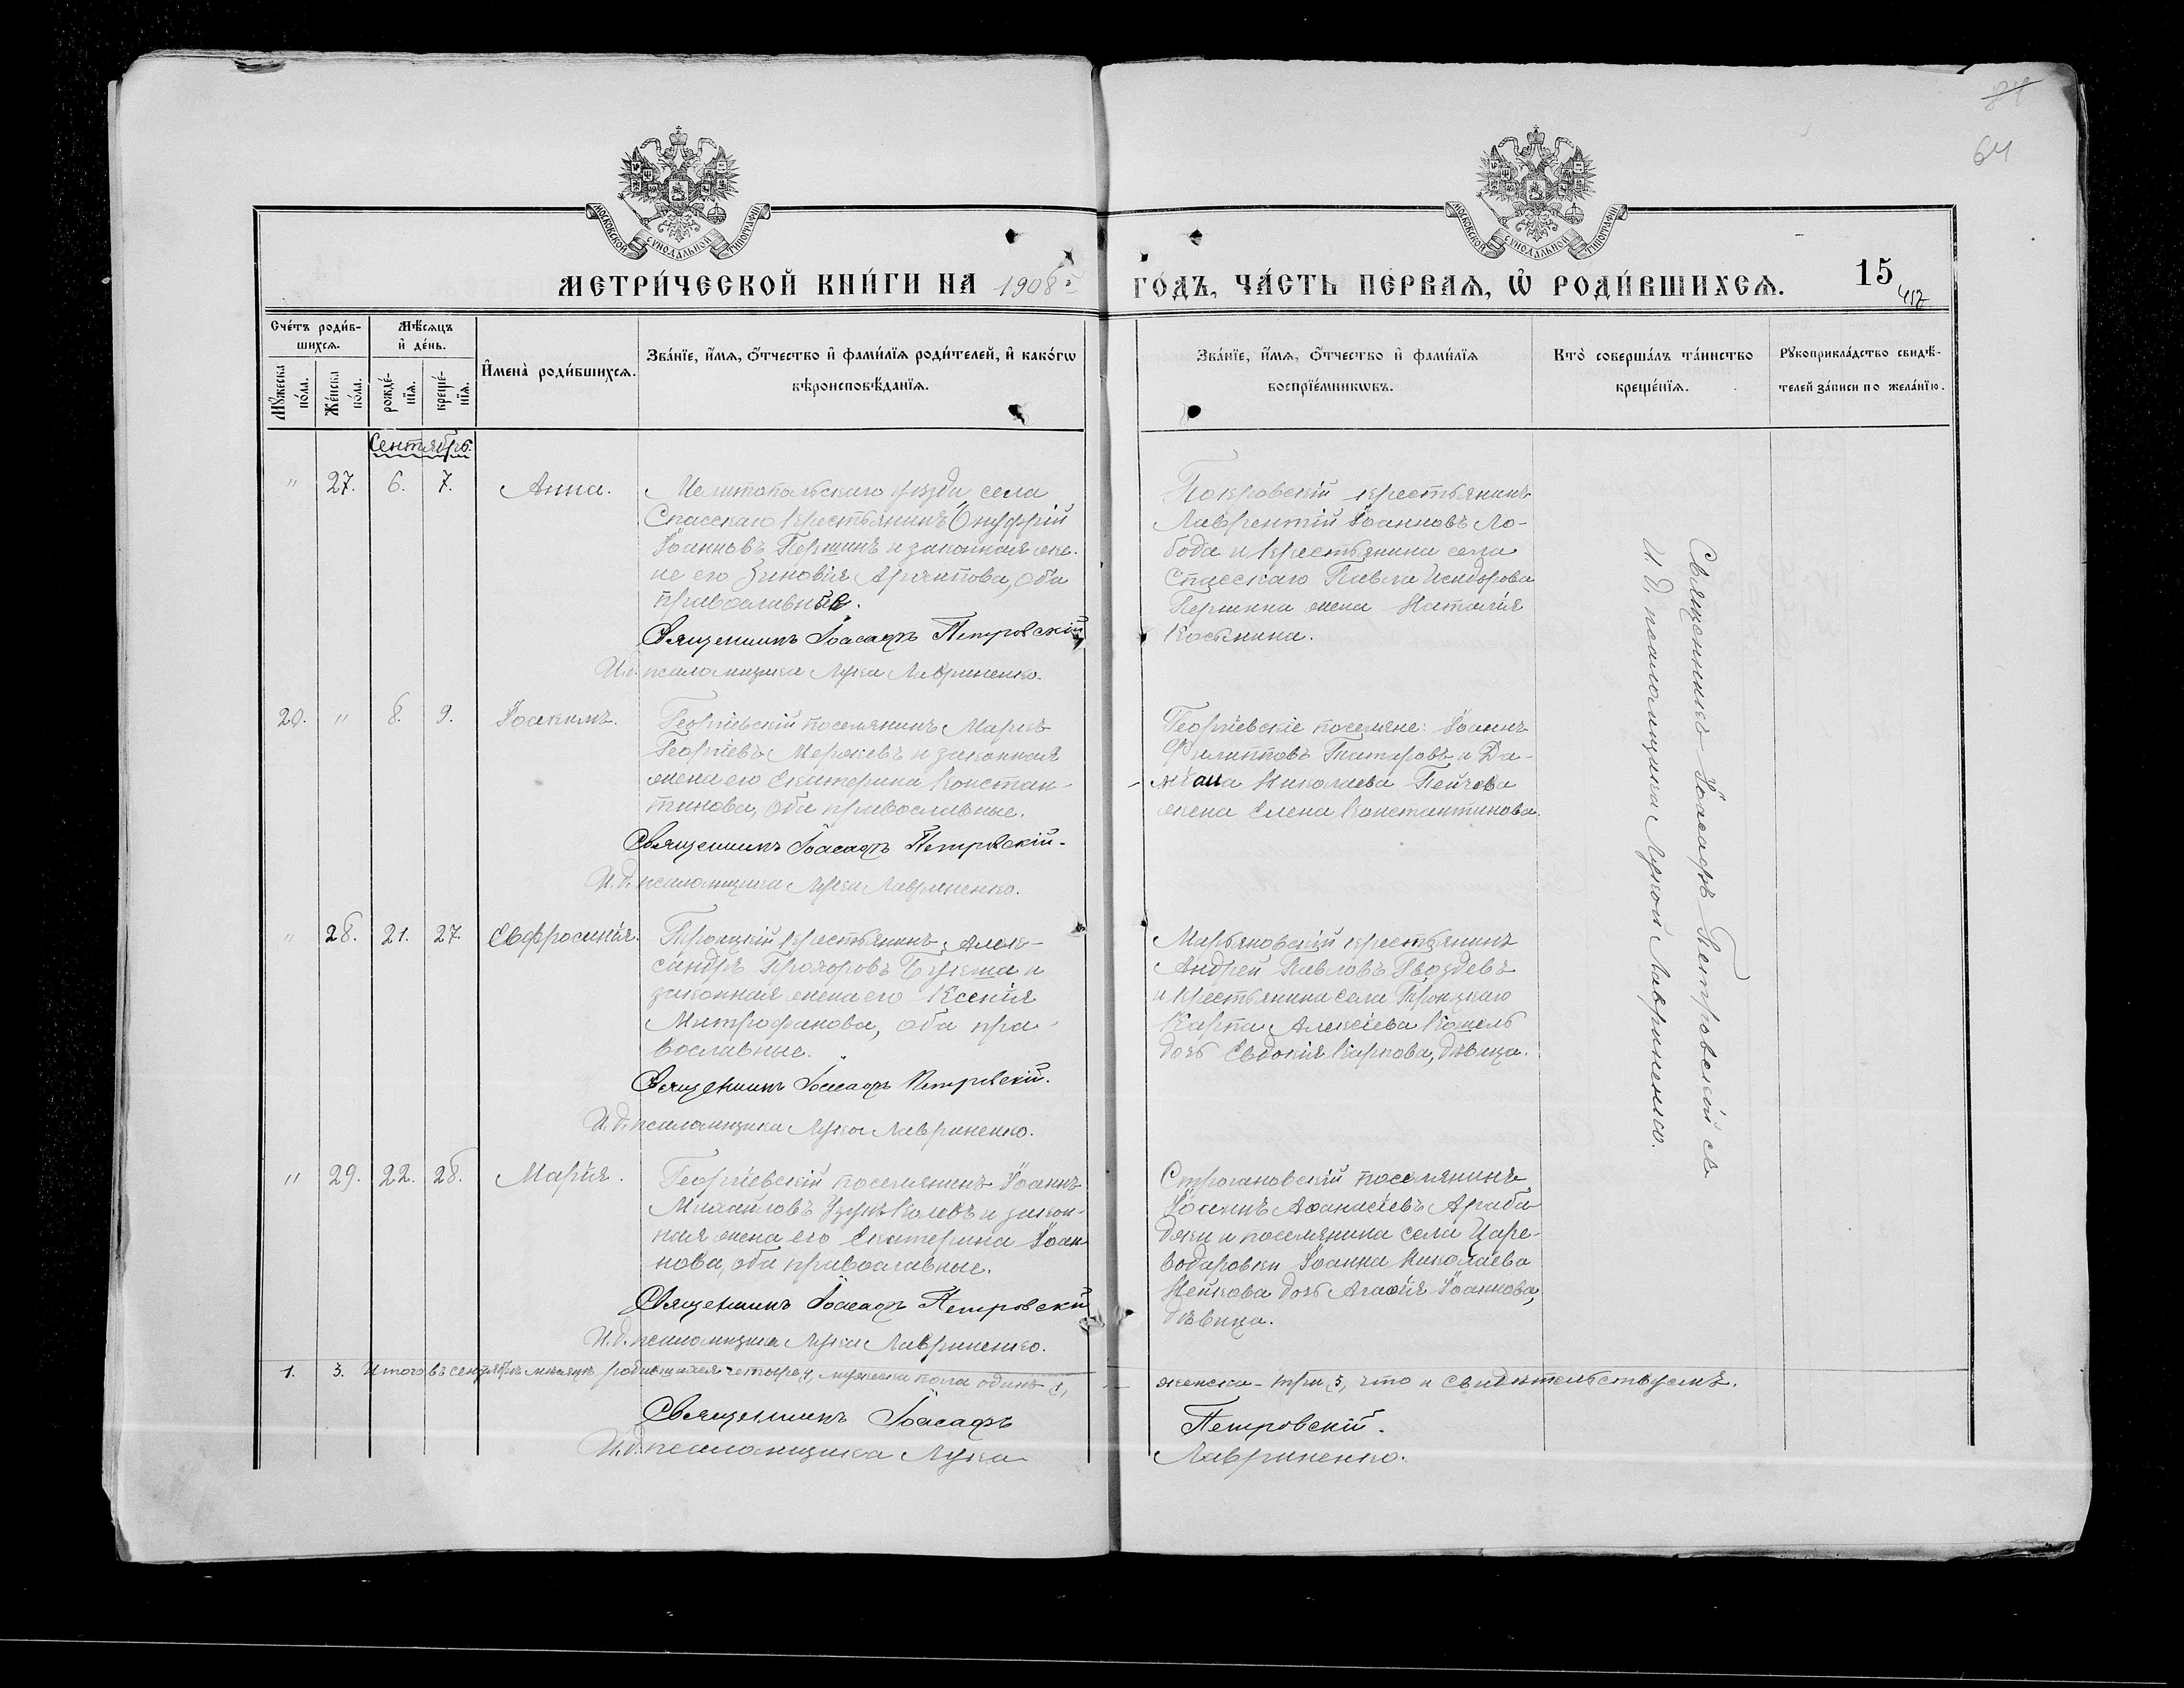 84
64
МОСКОВСКОЙ СѴНОДАЛЬНОЙ ТИПОГРАФІИ
МОСКОВСКОЙ СѴНОДАЛЬНОЙ ТИПОГРАФІИ
МЕТРИ́ЧЕСКОЙ КНИ́ГИ НА 1908 й ГО́ДЪ, ЧА́СТЬ ПЕ́РВАѦ, Ѡ҆ РОДИ́ВШИХСѦ. 15
Сче́тъ роди́в-
шихсѧ.
Мꙋ́жеска
по́ла.
Же́нска
по́ла.
Мѣ́сѧцъ
и҆ де́нь.
рожде́-
нїѧ.
креще́-
нїѧ.
И҆мена̀ роди́вшихсѧ.
Зва́нїе, и҆́мѧ, ѻ҆́тчество и҆ фами́лїѧ роди́телей, и҆ како́гѡ
вѣроисповѣ́данїѧ.
Зва́нїе, и҆́мѧ, ѻ҆́тчество и҆ фами́лїѧ
воспрїе́мникѡвъ.
Кто̀ соверша́лъ та́инство
креще́нїѧ.
Рꙋкоприкла́дство свидѣ́-
телей за́писи по жела́нїю.
Сентябрь.
" 27. 6. 7. Анна.
Мелитопольскаго уѣзда села
Спасскаго крестьянинъ Онуфрій
Іоанновъ Першинъ и законная же-
на его Зиновія Архипова, оба
православные.
Священникъ Іоасафъ Петровскій
И.д. псаломщика Лука Лавриненко.
Покровскій крестьянинъ
Лаврентій Іоанновъ Ло-
бода и крестьянина села
Спасскаго Павла Исидорова
Першина жена Наталія
Косьмина.
20. " 8. 9. Іоакимъ.
Георгіевскій поселянинъ Марко
Георгіевъ Мержевъ и законная
жена его Екатерина Констан-
тинова, оба православные.
Священникъ Іоасафъ Петровскій.
И.д. псаломщика Лука Лавриненко.
Георгіевскіе поселяне: Іоаннъ
Филипповъ Татаровъ и Да-
міана Николаева Пейчева
жена Елена Константинова.
" 28. 21. 27. Евфросинія.
Троицкій крестьянинъ Алек-
сандръ Прохоровъ и
законная жена его Ксенія
Митрофанова, оба пра-
вославные.
Священникъ Іоасафъ Петровскій.
И.д. псаломщика Лука Лавриненко.
Марьяновскій крестьянинъ
Андрей Павловъ Гвоздевъ
и крестьянина села Троицкаго
Карпа Алексіева Кошель
дочь Евдокія Карпова, дѣвица.
" 29. 22. 28. Марія.
Георгіевскій поселянинъ Іоаннъ
Михайловъ Узунъ Колевъ и закон-
ная жена его Екатерина Іоан-
нова, оба православные.
Священникъ Іоасафъ Петровскій
И.д. псаломщика Лука Лавриненко.
Строгановскій поселянинъ
Іоаннъ Аѳанасіевъ Араба-
джи и поселянина села Царе-
водаровки Іоанна Николаева
Нейкова дочь Агаѳія Іоаннова,
дѣвица.
Священникъ Іоасафъ Петровскій съ
И. д. псаломщика Лукой Лавриненко.
1. 3. Итого въ сентябрѣ мѣсяцѣ родившихся четыре 4, мужеска пола одинъ 1, женска - три 3, что и свидѣтельствуемъ.
Священникъ Іоасафъ Петровскій.
И.д. псаломщика Лука Лавриненко.